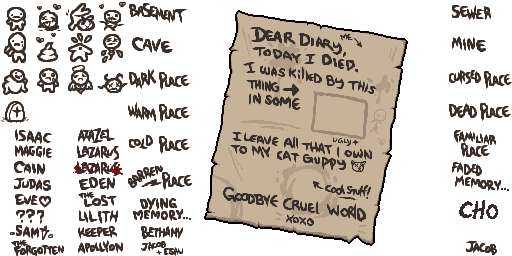 BASEMENT
CAVE
DARK PLACE
WARM PLACE
COLD PLACE
BARREN
PLACE
DYING
MEMORY...
ISAAC
MAGGIE
CAIN
JUDAS
EVE♡
???
SAMSON
THE
FORGOTTEN
AZAZEL
LAZARUS
LAZARUS
EDEN
THE
LOST
LILITH
KEEPER
APOLLYON
BETHANY
JACOB
+ ESAU
DEAR DIARY,
ME
TODAY I DIED.
I WAS KILLED BY THIS
THING →
IN SOME
UGLY
I LEAVE ALL THAT I OWN
TO MY CAT GUPPY
COOL STUFF!
GOODBYE CRUEL WORLD
XOXO
SEWER
MINE
CURSED PLACE
DEAD PLACE
FAMILIAR
PLACE
FADED
MEMORY...
CHO
JACOB